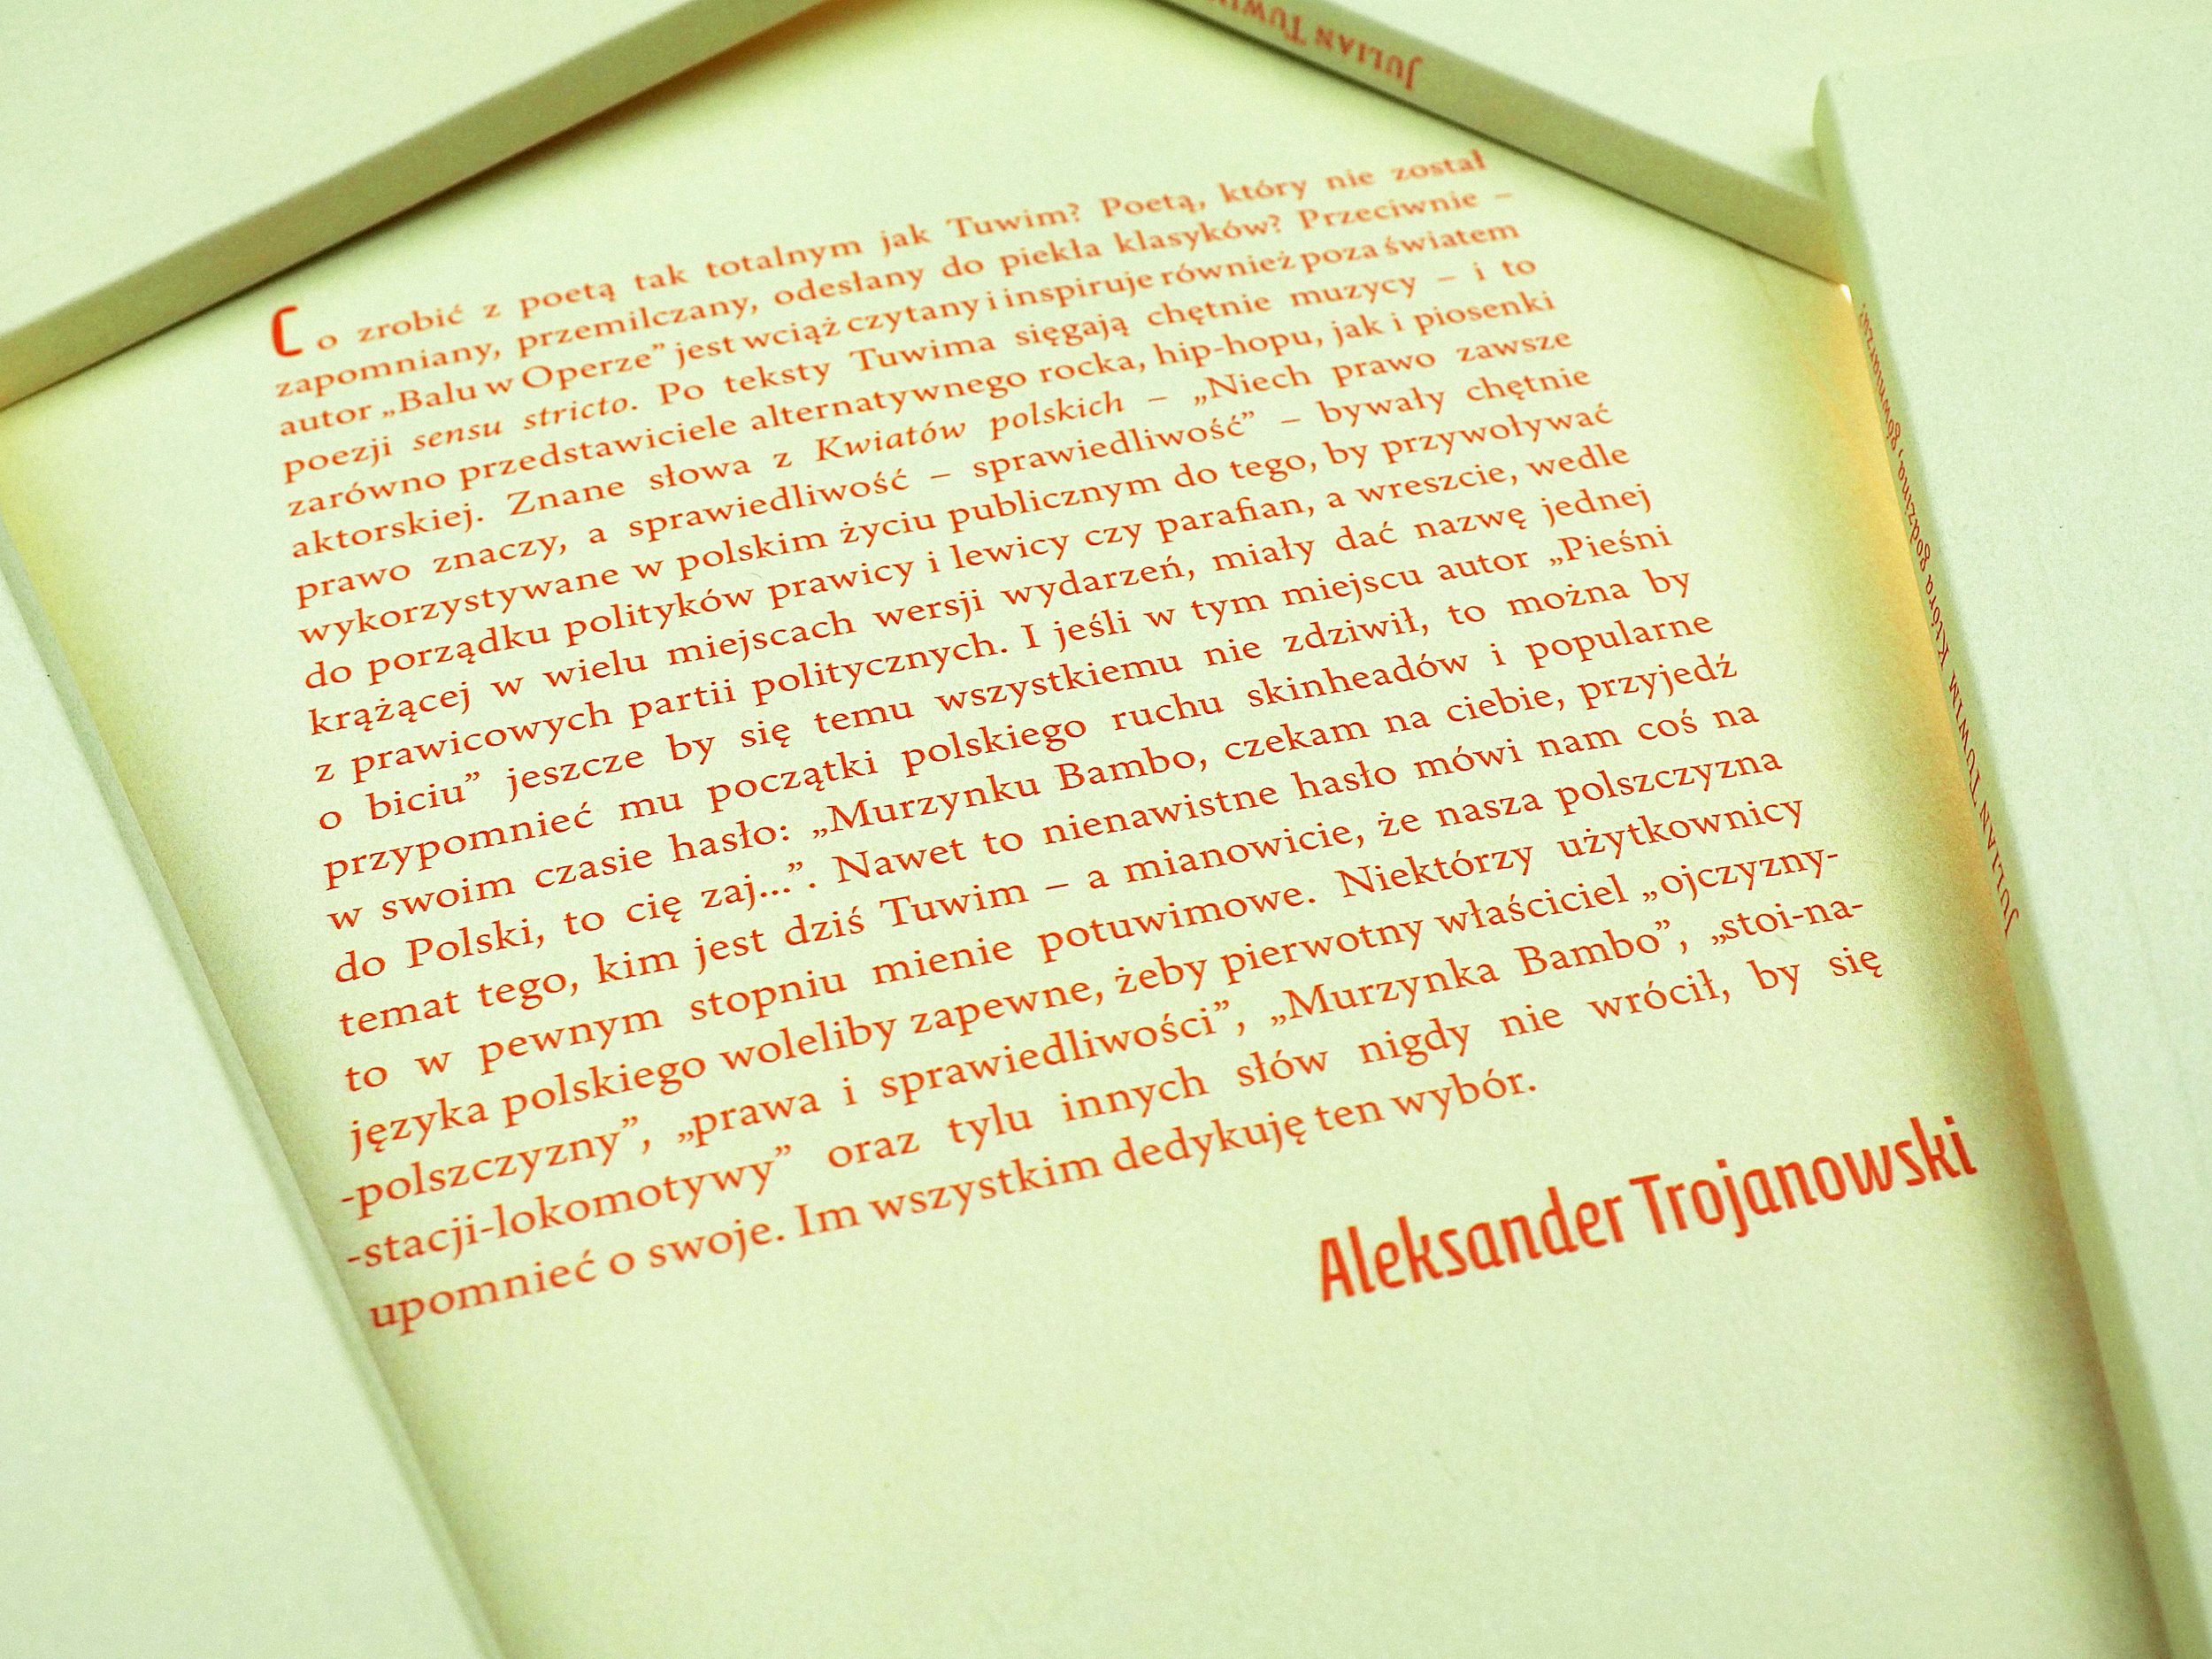 JULIAN TUWIM
Co zrobić z poetą tak totalnym jak Tuwim? Poetą, który nie został
zapomniany, przemilczany, odesłany do piekła klasyków? Przeciwnie –
autor „Balu w Operze” jest wciąż czytany i inspiruje również poza światem
poezji sensu stricto. Po teksty Tuwima sięgają chętnie muzycy – i to
zarówno przedstawiciele alternatywnego rocka, hip-hopu, jak i piosenki
aktorskiej. Znane słowa z Kwiatów polskich – „Niech prawo zawsze
prawo znaczy, a sprawiedliwość – sprawiedliwość” – bywały chętnie
wykorzystywane w polskim życiu publicznym do tego, by przywoływać
do porządku polityków prawicy i lewicy czy parafian, a wreszcie, wedle
krążącej w wielu miejscach wersji wydarzeń, miały dać nazwę jednej
z prawicowych partii politycznych. I jeśli w tym miejscu autor „Pieśni
o biciu” jeszcze by się temu wszystkiemu nie zdziwił, to można by
przypomnieć mu początki polskiego ruchu skinheadów i popularne
w swoim czasie hasło: „Murzynku Bambo, czekam na ciebie, przyjedź
do Polski, to cię zaj...”. Nawet to nienawistne hasło mówi nam coś na
temat tego, kim jest dziś Tuwim – a mianowicie, że nasza polszczyzna
to w pewnym stopniu mienie potuwimowe. Niektórzy użytkownicy
języka polskiego woleliby zapewne, żeby pierwotny właściciel „ojczyzny-
-polszczyzny”, „prawa i sprawiedliwości”, „Murzynka Bambo”, „stoi-na-
-stacji-lokomotywy” oraz tylu innych słów nigdy nie wrócił, by się
upomnieć o swoje. Im wszystkim dedykuję ten wybór.
Aleksander Trojanowski
JULIAN TUWIM Która godzina, gówniarzu?